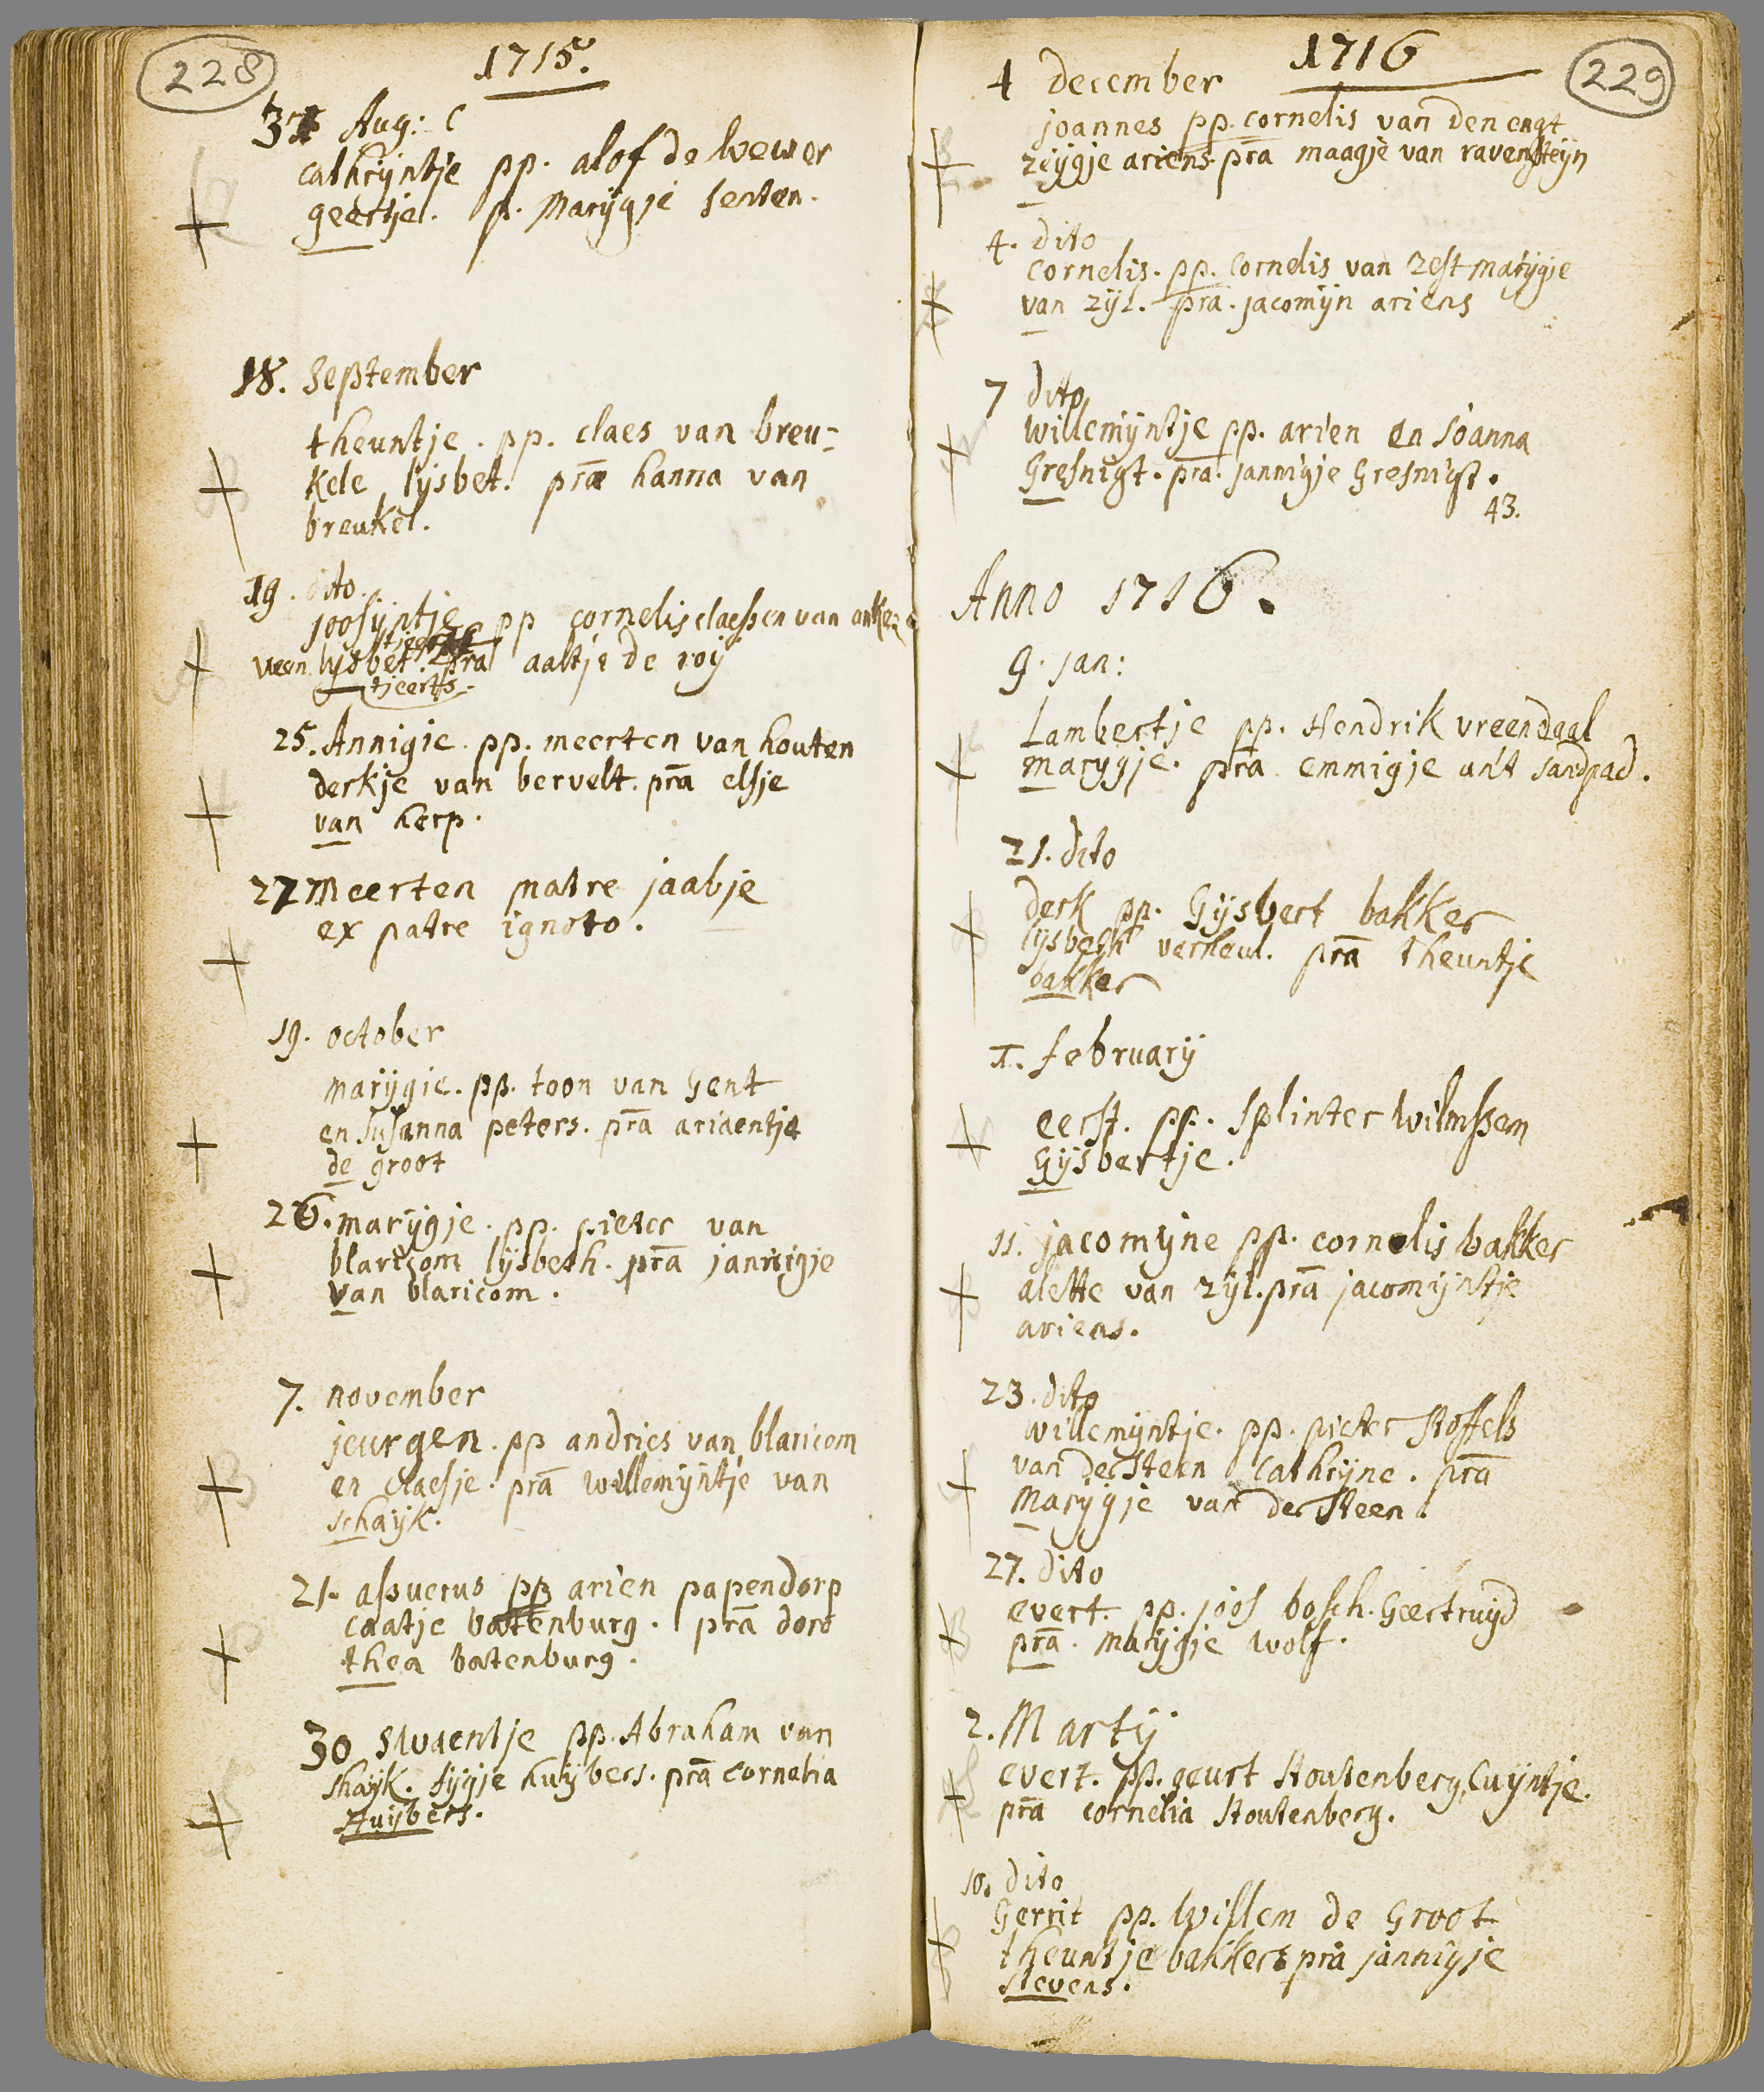 228
1715.
31 Aug: C
cathrijntje pp. alof de wewer
geertje. p. Marijgje senten.
18. September
theuntje. pp. claes van breu=
kele lijsbet. præ hanna van
breukel.
19. dito.
joosijntje pp cornelis claessen van anke
veen lijsbet. pra aaltje de roij
tjeerts.
25. Annigie. pp. meerten van houten
derkje van bervelt. pra elsje
van herp.
27 Meerten matre jaabje
ex patre ignoto.
19. october
marijgie. pp. toon van Gent
en susanna peters. pra ariaentje
de groot
26. marijgje. pp. pieter van
blaricom lijsbeth. pra jannigje
van blaricom.
7. november
jeurgen. pp andries van blaricom
en claesje. pra willemijntje van
schaijk.
21. assuerus pp arien papendorp
caatje battenburg. pra doro
thea batenburg.
30 swaentje pp. Abraham van
shaijk. sijgje huijbers. pra cornelia
Huijbers.
1716
229
4 december
joannes pp. cornelis van den engt
zeijgje ariens pra maagje van ravensteijn
4. dito
cornelis. pp. cornelis van zest marijgje
van zijl. pra. jacomijn ariens
7 dito
willemijntje pp. arien en joanna
Gresnigt. pra. jannigje Gresnigt.
43.
Anno 1716.
9. jan:
Lambertje pp. Hendrik vreendaal
marygje. pra emmigje ant sandpad.
21. dito
derk pp. Gijsbert bakker
lijsbeth verheul. pra theuntje
bakker
1. february
eerst. pp. Splinter wilmssen
Gijsbertje.
11. jacomijne pp. cornelis bakker
alette van zijl. pra jacomijntje
ariens.
23. dito
willemijntje. pp. pieter stoffels
van der steen Cathrijne. pra
Marijgje van der Steen.
27. dito
evert. pp. joos bosch. Geertruijd
pra. marijgje wolf.
2. Martij
evert. pp. geurt Stoutenberg, Cuijntje.
pra cornelia Stoutenberg.
10. dito
Gerrit pp. willem de Groot
theuntje bakkers pra jannigje
stevens.